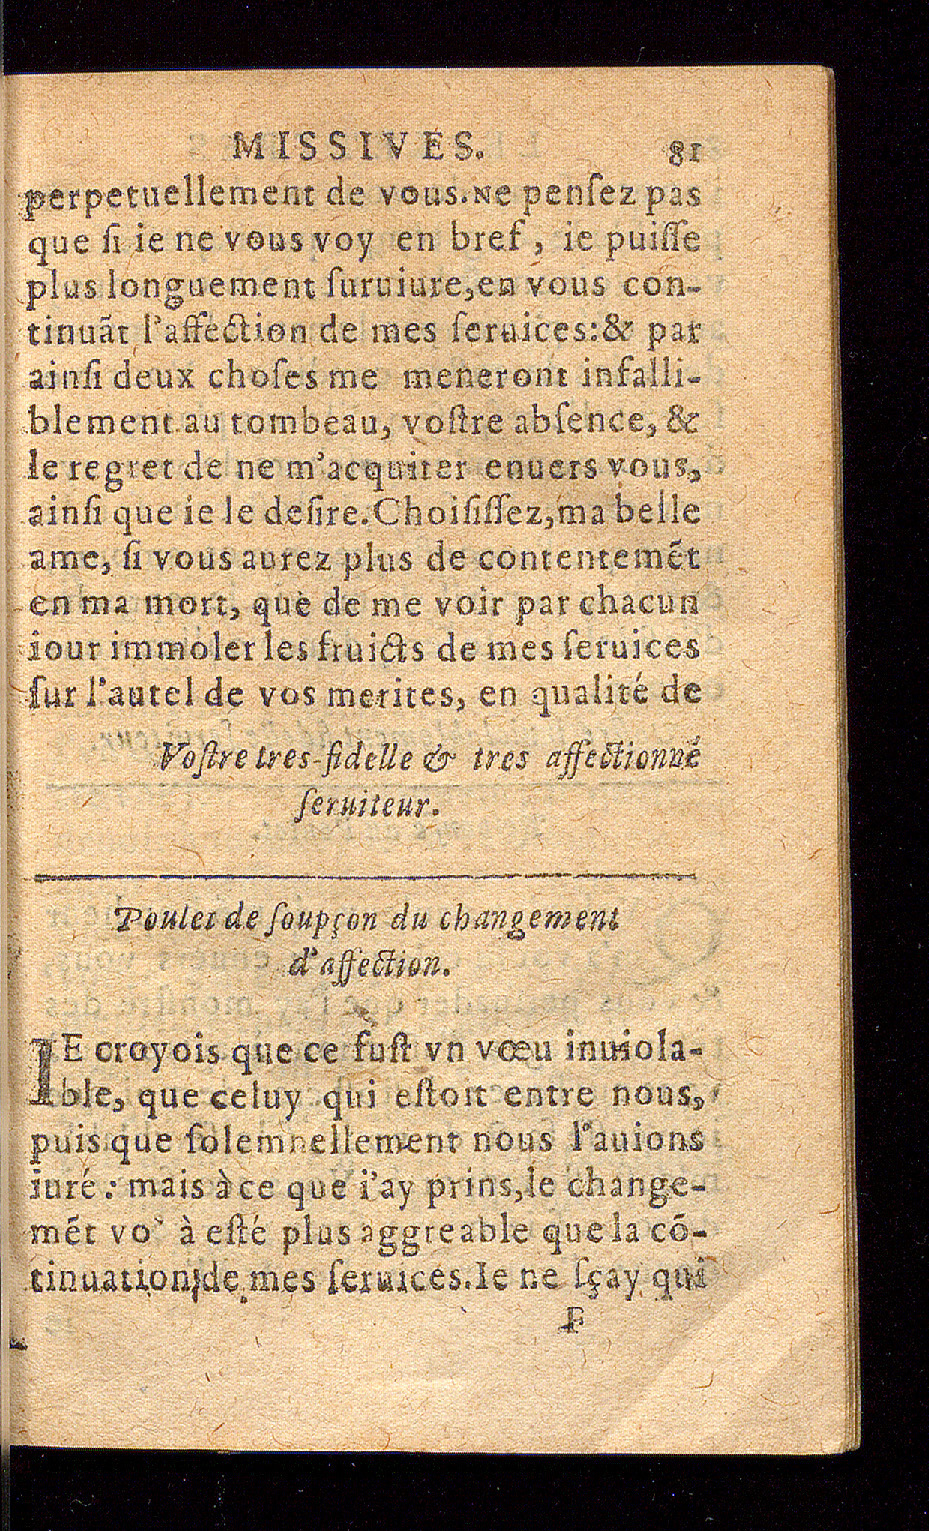 MISSIVES. 81
perpetuellement de vous. Ne penſez pas
que ſi ie ne vous voy en bref, ie puiſſe
plus longuement ſuruiure, en vous con-
tinuãt l'affection de mes ſeruices: & par
ainſi deux choſes me meneront infalli-
blement au tombeau, voſtre abſence, &
le regret de ne m'acquiter enuers vous,
ainſi que ie le deſire. Choiſiſſez, ma belle
ame, ſi vous aurez plus de contentemẽt
en ma mort, que de me voir par chacun
iour immoler les fruicts de mes ſeruices
ſur l'autel de vos merites, en qualité de
Voſtre tres-fidelle & tres affectionné
ſeruiteur.
Poulet de ſoupçon du changement
d'affection.
IE croyois que ce fuſt vn vœu inuiola-
ble, que celuy qui eſtoit entre nous,
puis que ſolemnellement nous l'auions
iuré: mais à ce que i'ay prins, le change-
mẽt vo' à eſté plus aggreable que la cõ-
tinuation de mes ſeruices. Ie ne ſçay qui
F